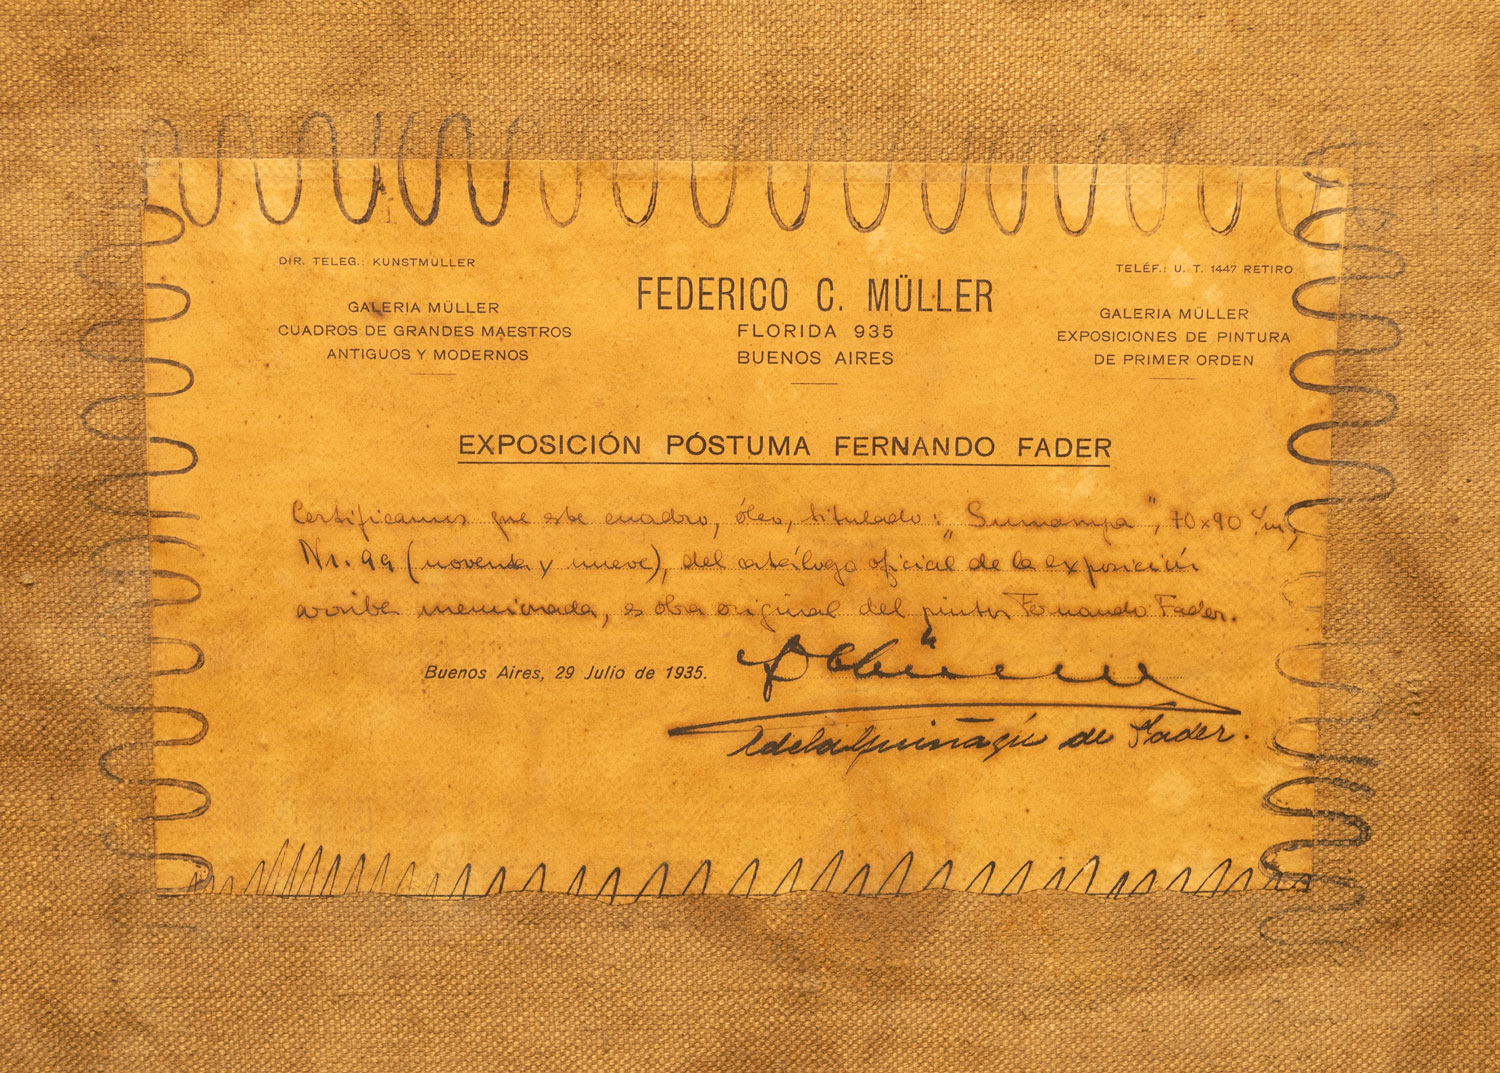 DIR. TELEG.: KUNSTMÜLLER
GALERIA MÜLLER
CUADROS DE GRANDES MAESTROS
ANTIGUOS Y MODERNOS
FEDERICO C. MÜLLER
FLORIDA 935
BUENOS AIRES
TELÉF.: U. T. 1447 RETIRO
GALERIA MÜLLER
EXPOSICIONES DE PINTURA
DE PRIMER ORDEN
EXPOSICIÓN PÓSTUMA FERNANDO FADER
Certificamos que este cuadro, óleo, titulado: "Sumampa", 70x90 c/m,
Nr. 99 (noventa y nueve), del catálogo oficial de la exposición
arriba mencionada, es obra original del pintor Fernando Fader.
Buenos Aires, 29 Julio de 1935.
Adela Guiñazú de Fader.